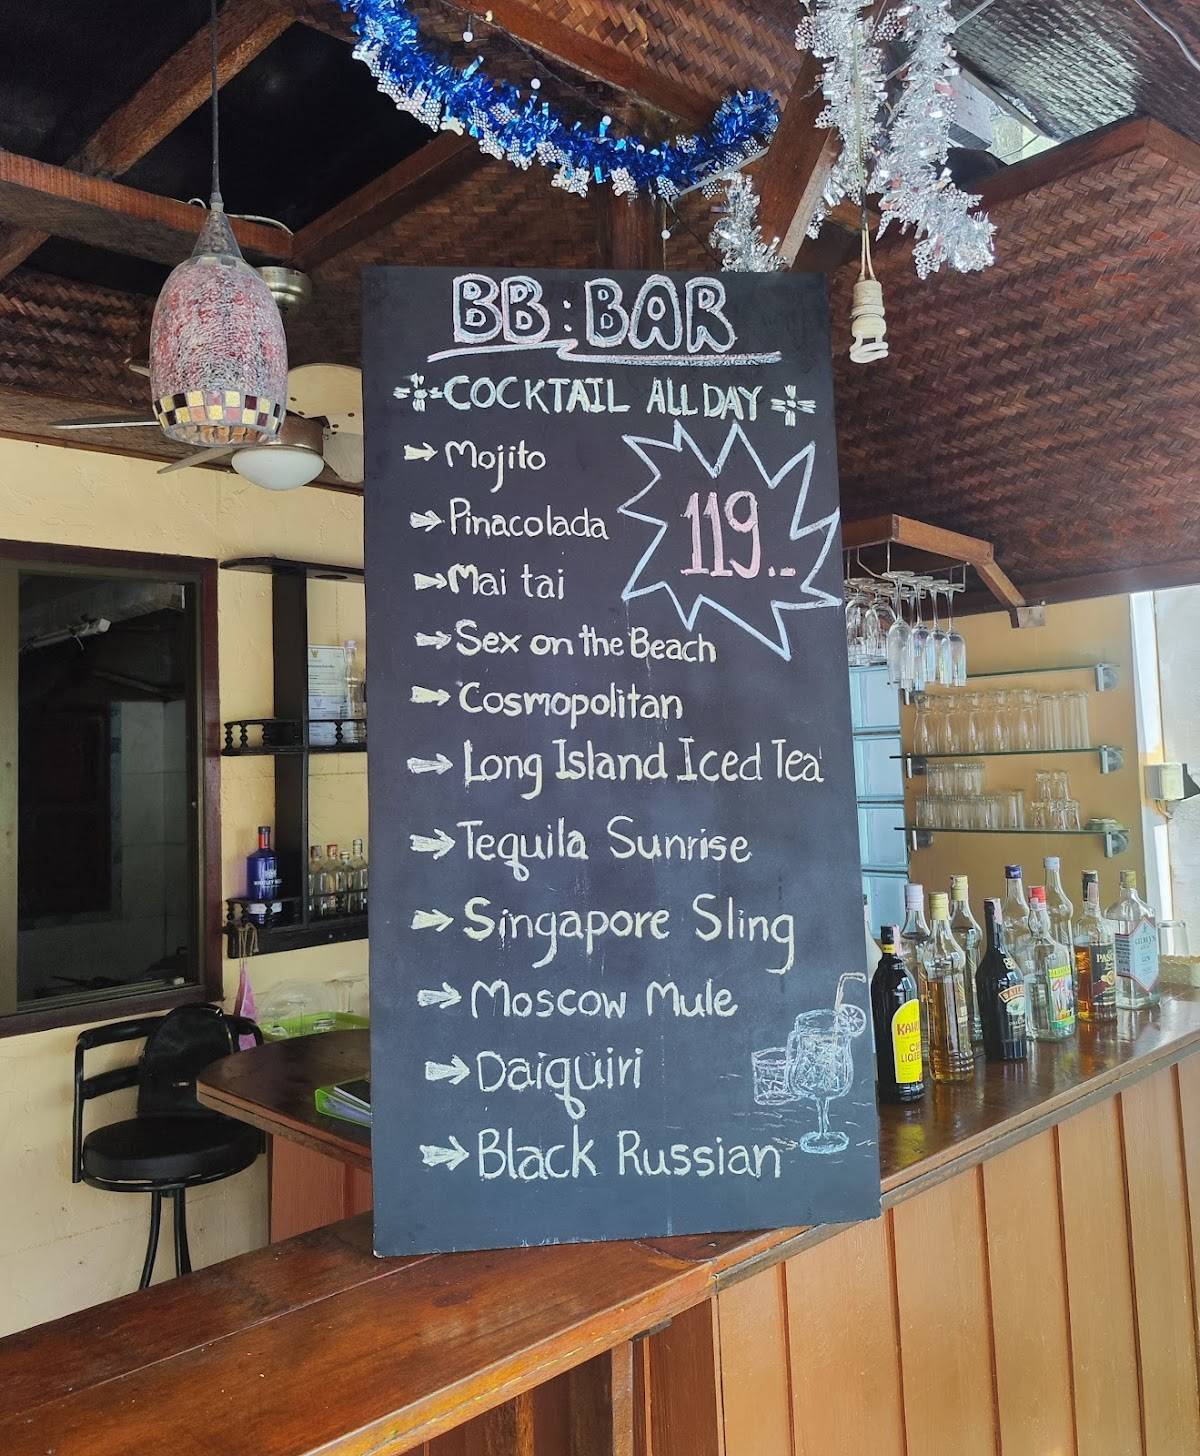 BB:BAR
COCKTAIL ALL DAY
→ Mojito
→ Pinacolada
119.-
→ Mai tai
→ Sex on the Beach
→ Cosmopolitan
→ Long Island Iced Tea
→ Tequila Sunrise
→ Singapore Sling
→ Moscow Mule
→ Daiquiri
→ Black Russian